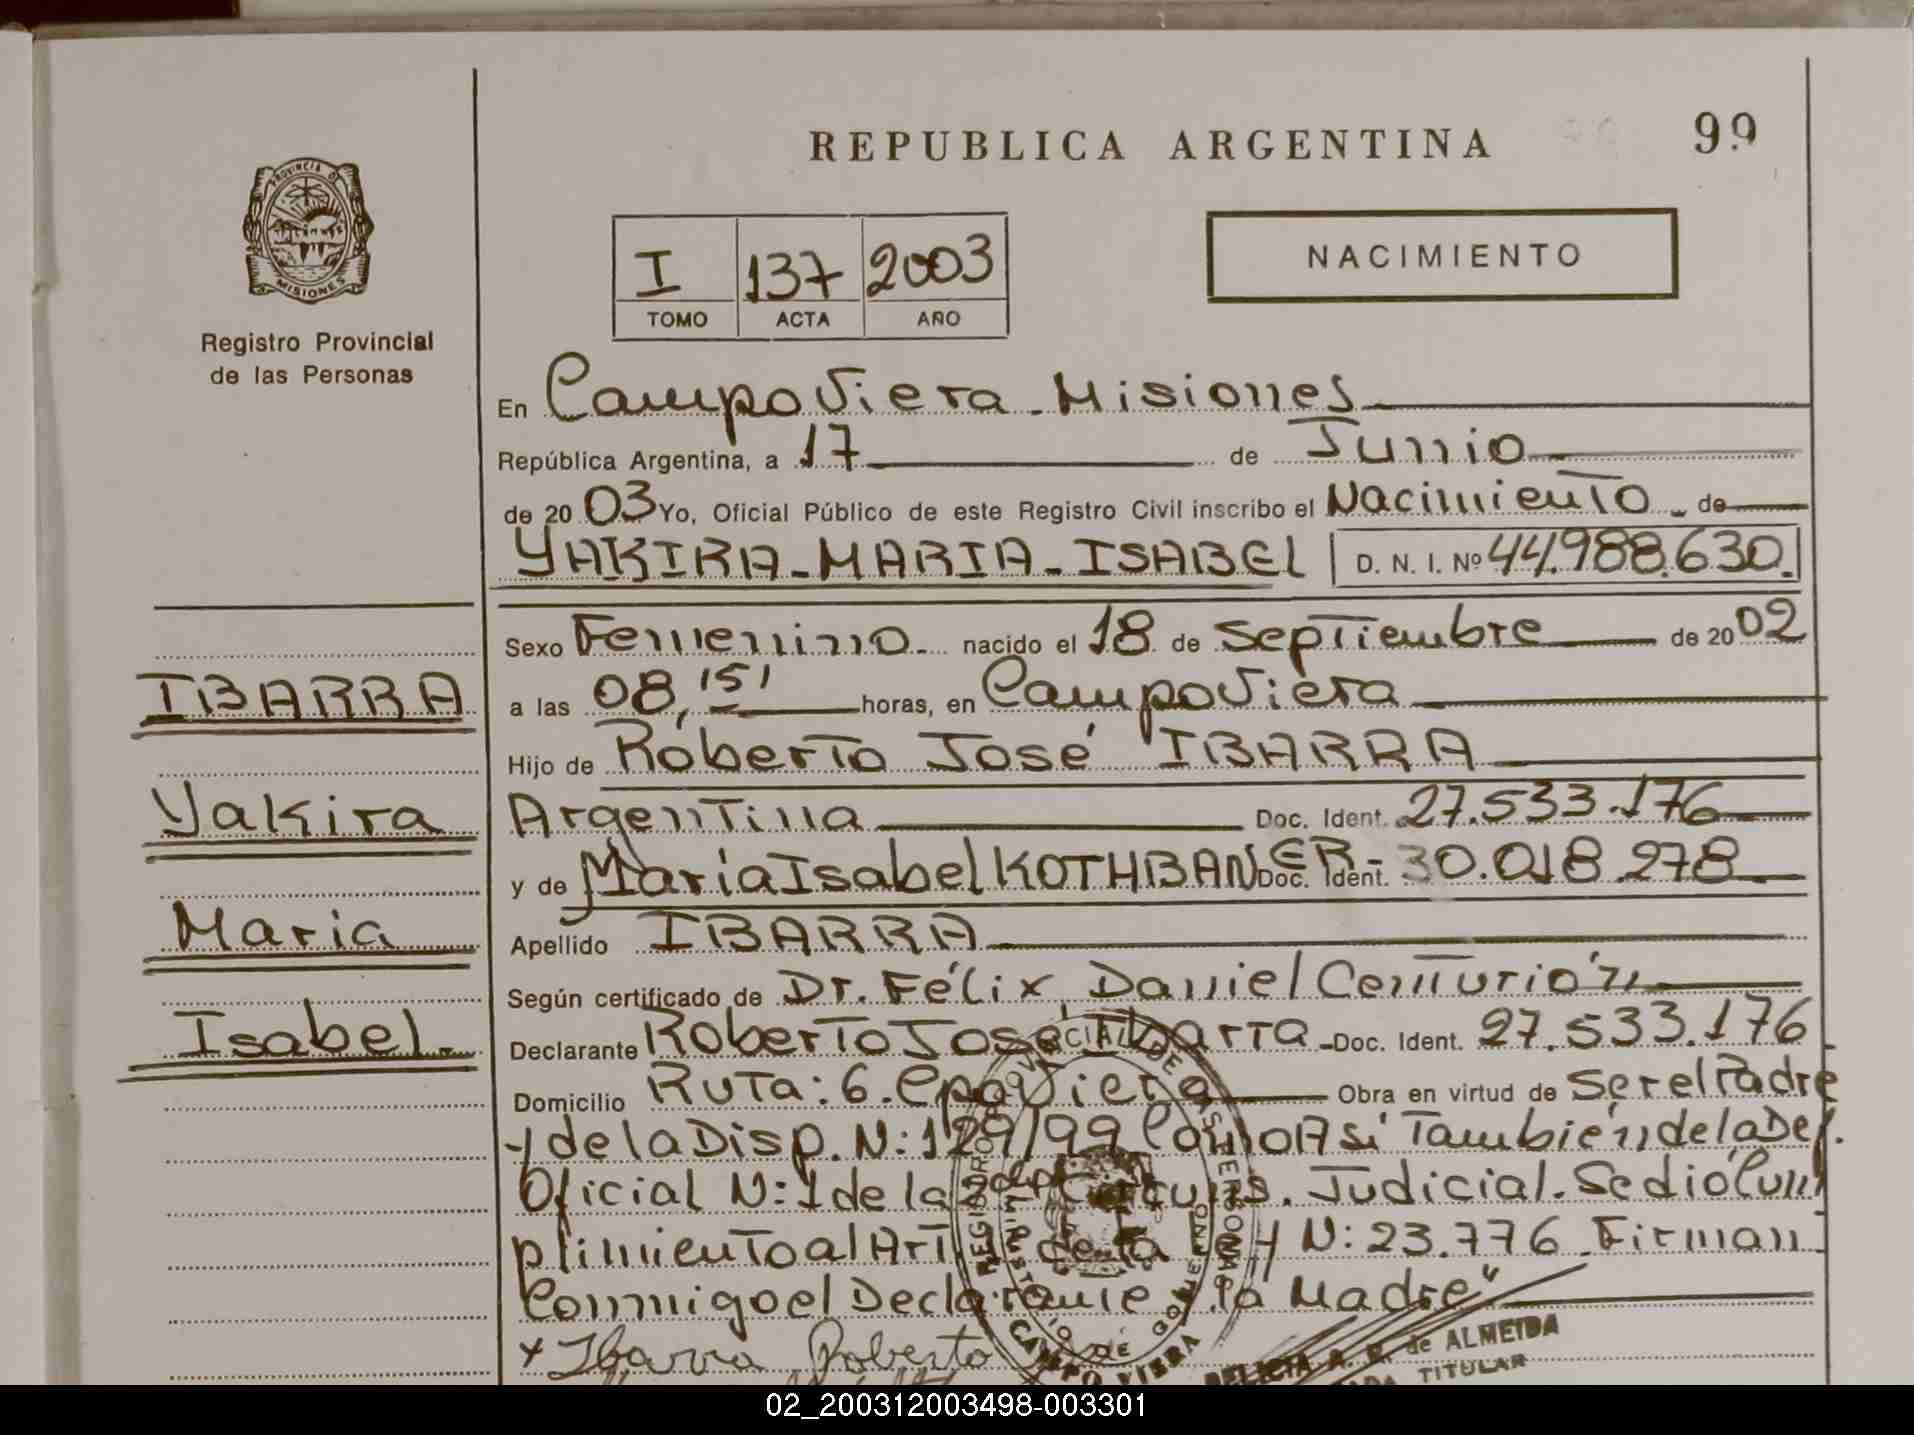 REPUBLICA ARGENTINA
99
PROVINCIA DE
MISIONES
Registro Provincial
de las Personas
I 137 2003
TOMO ACTA AÑO
NACIMIENTO
En Campo Viera - Misiones
República Argentina, a 17 de Junio
de 20 03 Yo, Oficial Público de este Registro Civil inscribo el Nacimiento - de
YAKIRA - MARIA - ISABEL D. N. I. Nº 44.988.630.
Sexo Femenino. nacido el 18 de Septiembre de 20 02
a las 08,15' horas, en Campo Viera
Hijo de Roberto José IBARRA
Argentina Doc. Ident. 27.533.176
y de María Isabel KOTHBANER - Doc. Ident. 30.018.278
Apellido IBARRA
Según certificado de Dr. Félix Daniel Centurión
Declarante Roberto José Ibarra - Doc. Ident. 27.533.176
Domicilio Ruta: 6. Cpo Viera Obra en virtud de Ser el Padre
y de la Disp. N: 129/99 Como Así También de la Def.
Oficial N: 1 de la Circuns. Judicial. Se dió Cum
plimiento al Art. de la Ley N: 23.776. Firman
Conmigo el Declarante y la Madre"
x Ibarra Roberto
IBARRA
Yakira
Maria
Isabel.
REGISTRO PROVINCIAL DE LAS PERSONAS
MINISTERIO DE GOBIERNO
CAMPO VIERA
DELICIA A. de ALMEIDA
TITULAR
02_200312003498-003301